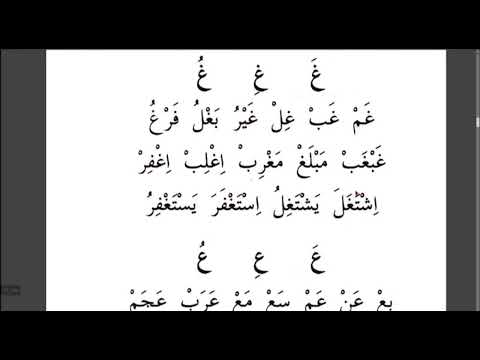 غَ غِ غُ
غَمْ غَبْ غِلْ غَيْرُ بَغْلُ فَرْغُ
غَبْغَبْ مَبْلَغْ مَغْرِبْ اِغْلِبْ اِغْفِرْ
اِشْتَغَلَ يَشْتَغِلُ اِسْتَغْفَرَ يَسْتَغْفِرُ
عَ عِ عُ
بِعْ عَنْ عَمْ سَعْ مَعْ عَرَبْ عَجَمْ